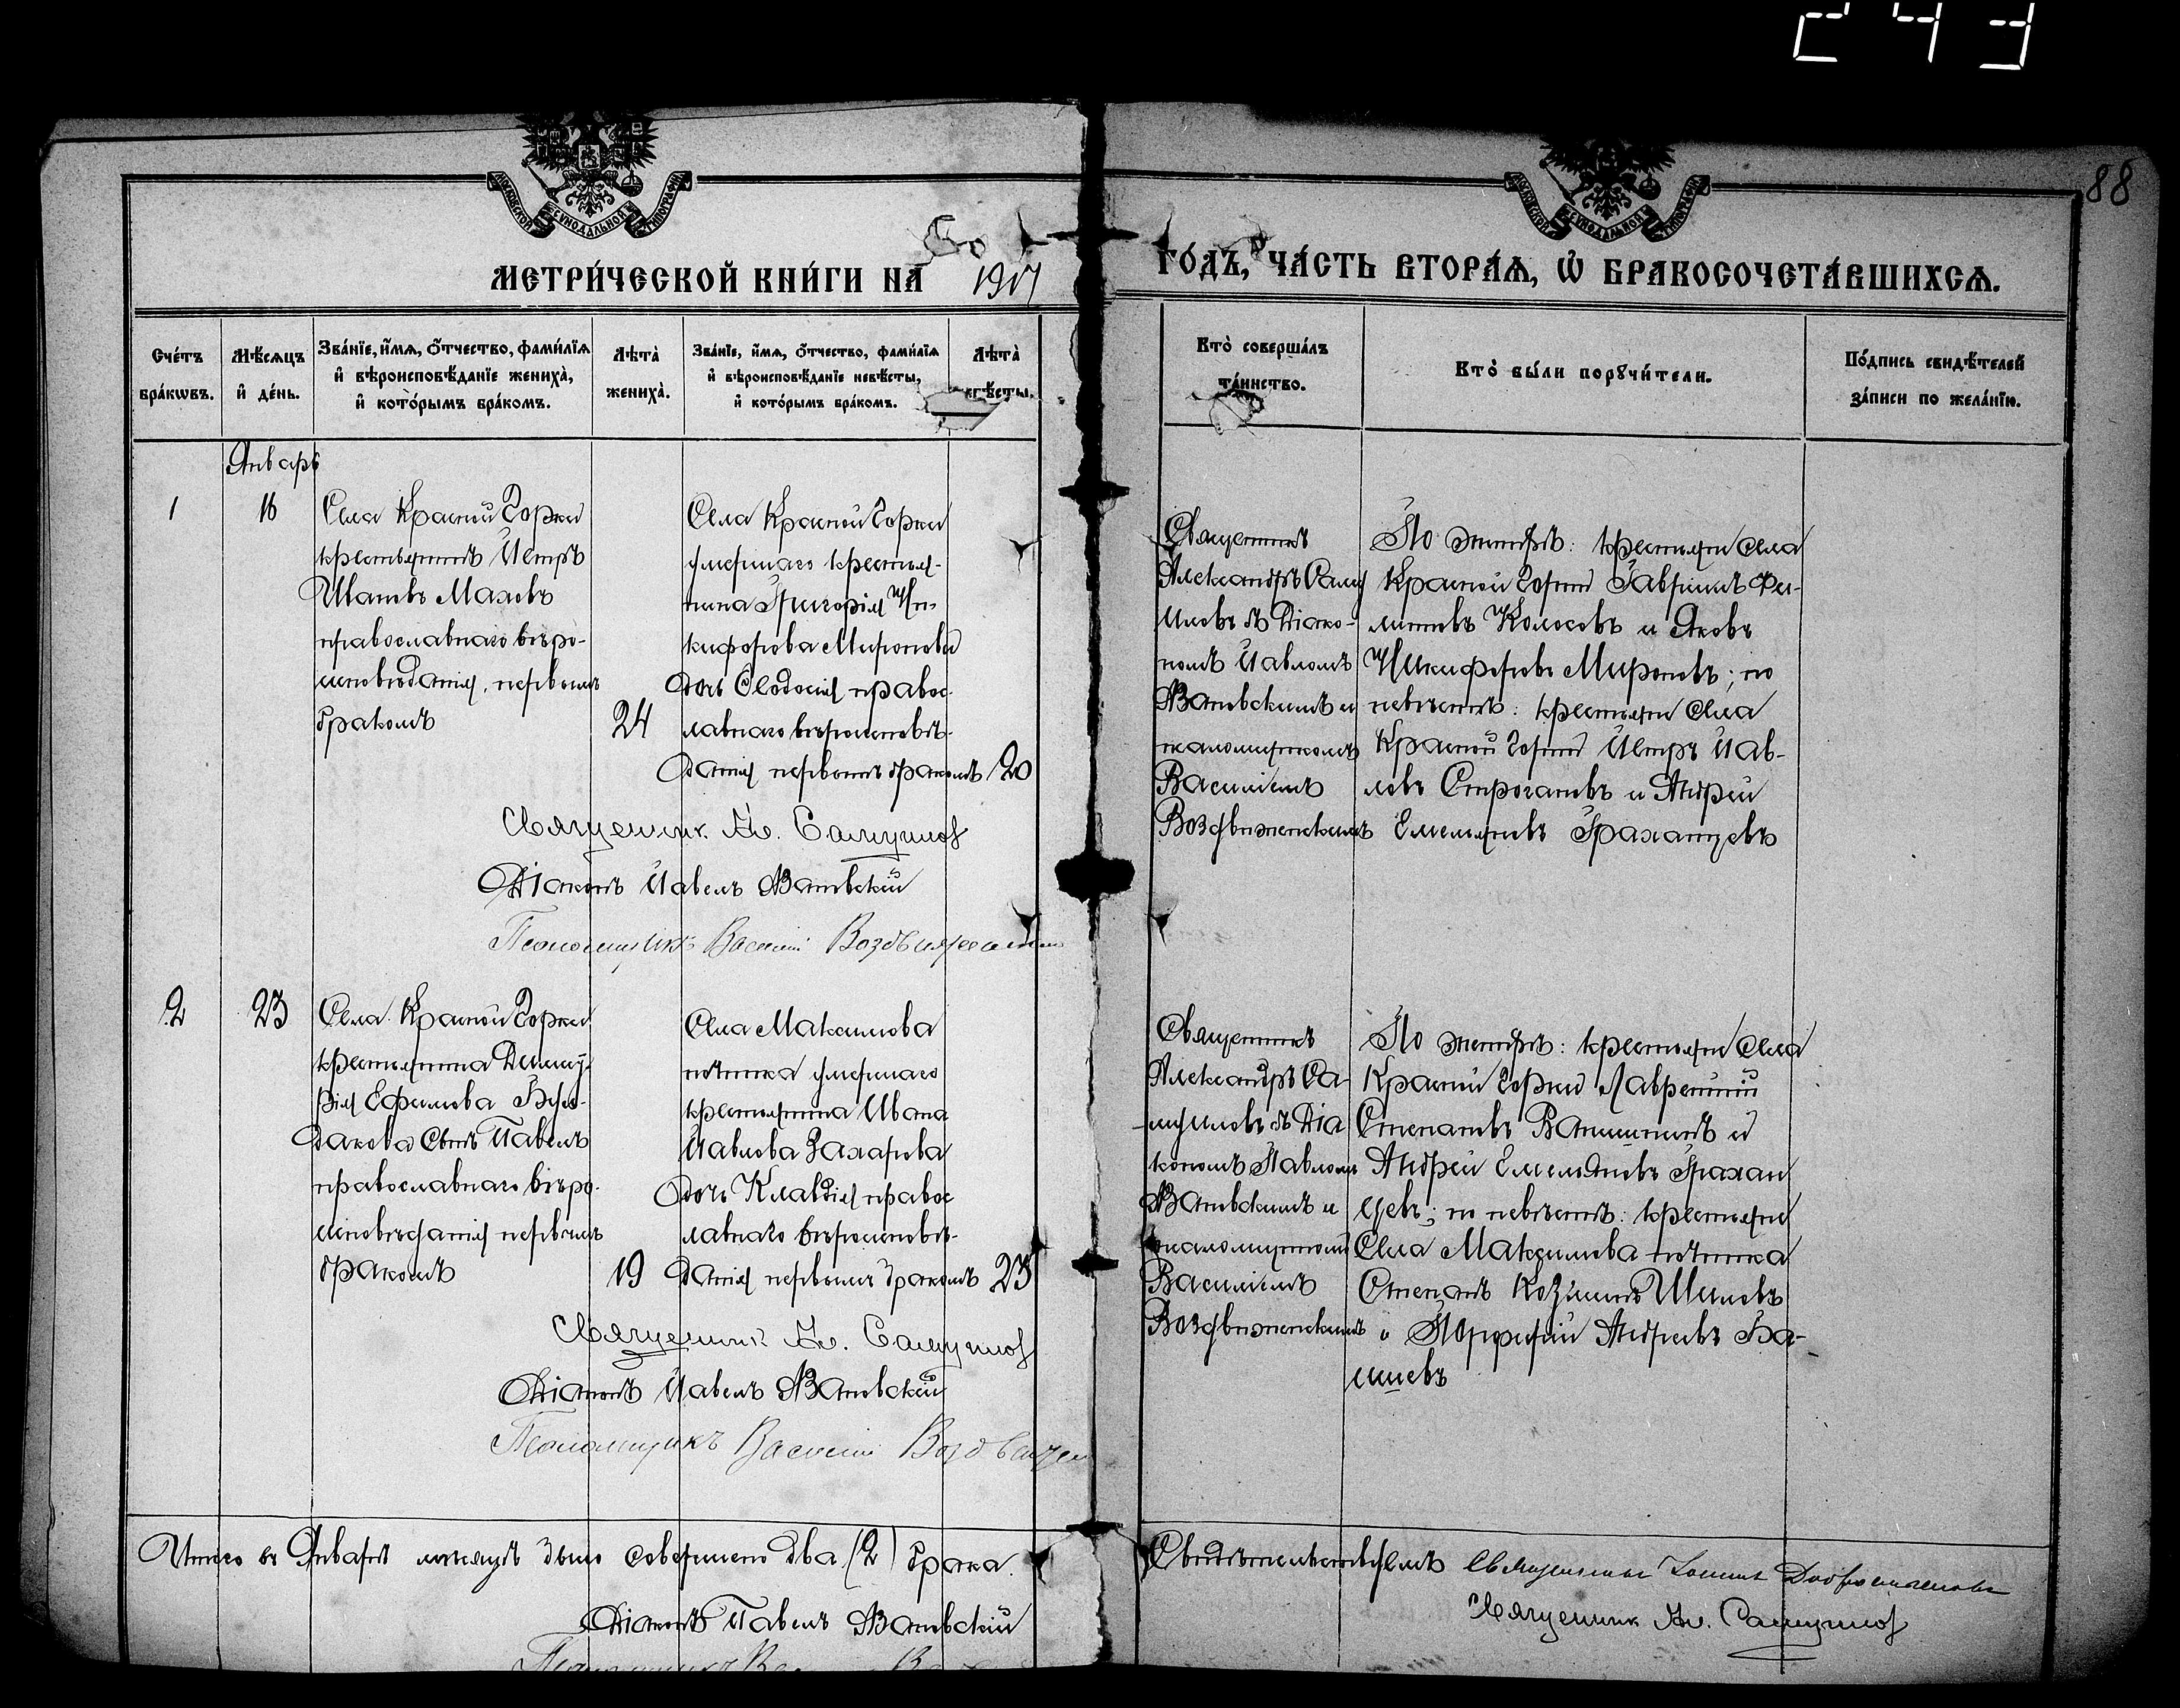 243
88
МОСКОВСКОЙ СѴНОДАЛЬНОЙ ТИПОГРАФІИ
МОСКОВСКОЙ СѴНОДАЛЬНОЙ ТИПОГРАФІИ
МЕТРИ́ЧЕСКОЙ КНИ́ГИ НА 1917 ГО́ДЪ, ЧА́СТЬ ВТОРА́Ѧ, Ѡ҆ БРАКОСОЧЕТА́ВШИХСѦ.
Сче́тъ бра́кѡвъ.
Мѣ́сяцъ и҆ де́нь.
Зва́нїе, и҆́мѧ, ѻ҆́тчество, фами́лїѧ
и҆ вѣроисповѣ́данїе жениха̀,
и҆ кото́рымъ бра́комъ.
Лѣта̀ жениха̀.
Зва́нїе, и҆́мѧ, ѻ҆́тчество, фами́лїѧ
и҆ вѣроисповѣ́данїе невѣ́сты,
и҆ кото́рымъ бра́комъ.
Лѣта̀
Кто̀ соверша́лъ
та́инство.
Кто̀ бы́ли порꙋчи́тели.
По́дпись свидѣ́телей
за́писи по жела́нїю.
Январь
1
16
Села Красной Горки
крестьянинъ Петръ
Ивановъ Маховъ
православнаго вѣро-
исповѣданія, первымъ
бракомъ
24
Села Красной Горки
умершаго крестья-
нина Григорія Ни-
кифорова Миронова
дочь Ѳеодосія правос-
лавнаго вѣроисповѣ-
данія первымъ бракомъ
20
Священникъ
Александръ Саму
иловъ съ Діако-
номъ Павломъ
и
псаломщикомъ
Василіемъ
Воздвиженскимъ
По женихѣ: крестьяне села
Красной Горки Гавриилъ Фи-
липповъ Колосовъ и Яковъ
Никифоровъ Мироновъ; по
невѣстѣ: крестьяне села
Красной Горки Петръ Пав-
ловъ Строгановъ и Андрей
Емельяновъ Граханцевъ
Священник Ал. Самуилов
Діаконъ Павелъ
Псаломщикъ Василій Воздвиженскій
2
23
Села Красной Горки
крестьянина Димит-
рія Ефимова Бур-
дакова сынъ Павелъ
православнаго вѣро-
исповѣданія первымъ
бракомъ
19
Села Максимова
починка умершаго
крестьянина Ивана
Павлова Захарова
дочь Клавдія правос
лавнаго вѣроисповѣ-
данія первымъ бракомъ
23
Священникъ
Александръ Са-
муиловъ съ Діа
кономъ Павломъ
и
псаломщикомъ
Василіемъ
Воздвиженскимъ
По женихѣ: крестьяне села
Красной Горки Лаврентій
Степановъ и
Андрей Емельяновъ Грахан
цевъ; по невѣстѣ: крестьяне
Села Максимова починка
Степанъ Козьминъ Шиловъ
и Порфирій Андреевъ Ба-
Священник Ал. Самуилов
Діаконъ Павелъ
Псаломщикъ Василій
Итого въ Январѣ мѣсяцѣ было совершено два (2) брака.
Діаконъ Павелъ
Свидѣтельствуемъ Священникъ Іоаннъ
Священник Ал. Самуилов